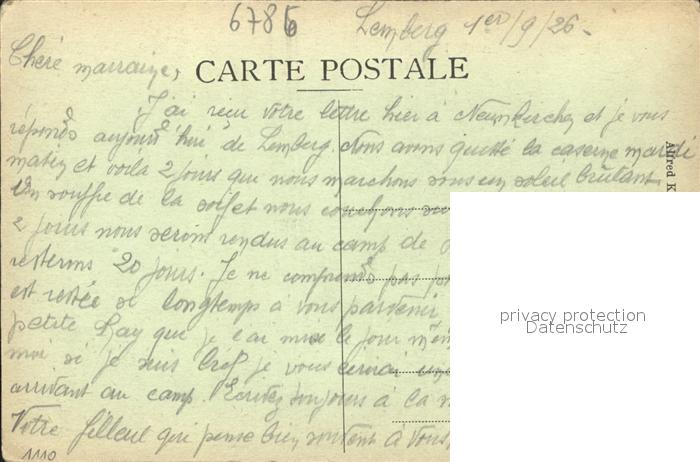 6786
Lemberg 1er/9/26-
Chère marraine,
CARTE POSTALE
J'ai reçu votre lettre hier à Neunkirchen et je vous
réponds aujourd'hui de Lemberg. Nous avons quitté la caserne mardi
matin et voila 2 jours que nous marchons sous un soleil brûlant
On souffre de la soif et nous couchons
2 jours nous serons rendus au camp de
resterons 20 jours. Je ne comprends pas
est restée si longtemps à vous parvenir
petite Lay que je l'ai mise le jour même
moi si je suis bref je vous
arrivant au camp. Ecrivez toujours à la
Votre filleul qui pense bien souvent à vous,
1110
Alfred K
privacy protection
Datenschutz